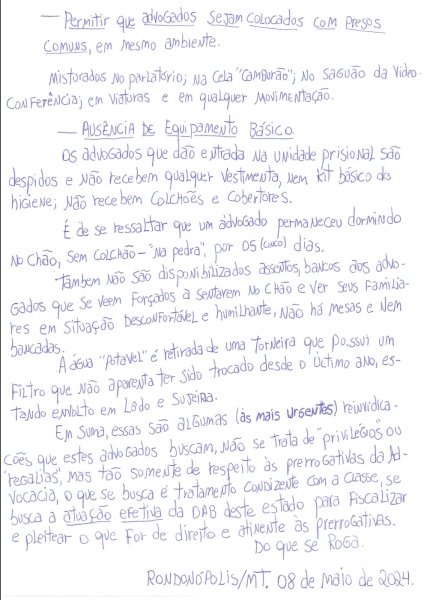 — Permitir que advogados sejam colocados com presos
comuns, em mesmo ambiente.
Misturados no parlatório; na cela "camburão"; no saguão da video
conferência; em viaturas e em qualquer movimentação.
— Ausência de Equipamento Básico.
Os advogados que dão entrada na unidade prisional são
despidos e não recebem qualquer vestimenta, nem kit básico de
higiene; não recebem colchões e cobertores.
É de se ressaltar que um advogado permaneceu dormindo
no chão, sem colchão - "na pedra", por 05 (cinco) dias.
Tambem não são disponibilizados assentos, bancos aos advo-
gados que se veem forçados a sentarem no chão e ver seus familia-
res em situação desconfortável e humilhante, não há mesas e nem
bancadas.
A água "potavel" é retirada de uma torneira que possui um
filtro que não aparenta ter sido trocado desde o último ano, es-
tando envolto em lodo e sujeira.
Em suma, essas são algumas (às mais urgentes) reinvidica-
ções que estes advogados buscam, não se trata de "privilégios" ou
"regalias", mas tão somente de respeito às prerrogativas da Ad-
vocacia, o que se busca é tratamento condizente com a classe, se
busca a atuação efetiva da OAB deste estado para fiscalizar
e pleitear o que for de direito e atinente às prerrogativas.
Do que se roga.
Rondonópolis/MT. 08 de maio de 2024.